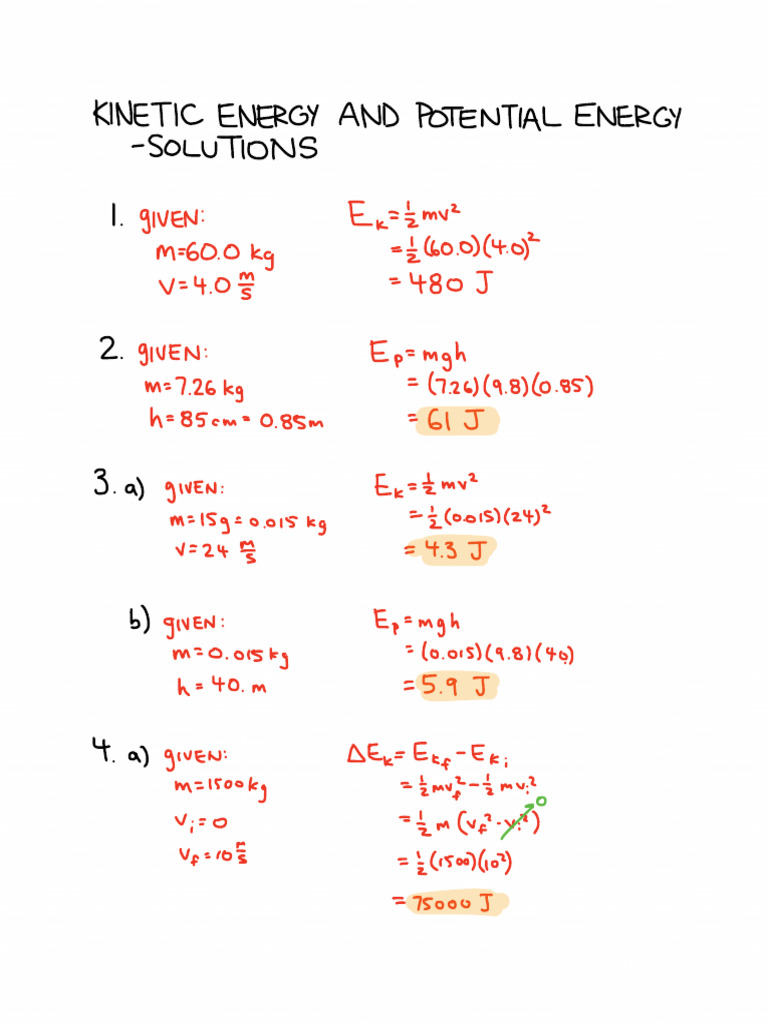 KINETIC ENERGY AND POTENTIAL ENERGY
-SOLUTIONS
1. GIVEN:
m=60.0 kg
v=4.0 m/s
Eₖ=½mv²
=½(60.0)(4.0)²
=480 J
2. GIVEN:
m=7.26 kg
h=85cm=0.85m
Eₚ=mgh
=(7.26)(9.8)(0.85)
=61 J
3. a) GIVEN:
m=15g=0.015 kg
v=24 m/s
Eₖ=½mv²
=½(0.015)(24)²
=4.3 J
b) GIVEN:
m=0.015kg
h=40. m
Eₚ=mgh
=(0.015)(9.8)(40.)
=5.9 J
4. a) GIVEN:
m=1500kg
vᵢ=0
v_f=10 m/s
ΔEₖ=E_kf-E_ki
=½mv_f²-½mvᵢ²
=½m(v_f²-vᵢ²) 0
=½(1500)(10²)
=75000 J